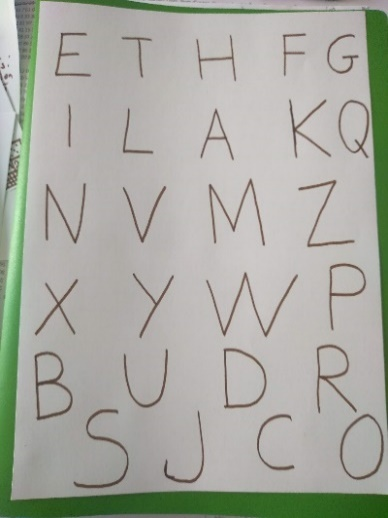 E T H F G
I L A K Q
N V M Z
X Y W P
B U D R
S J C O